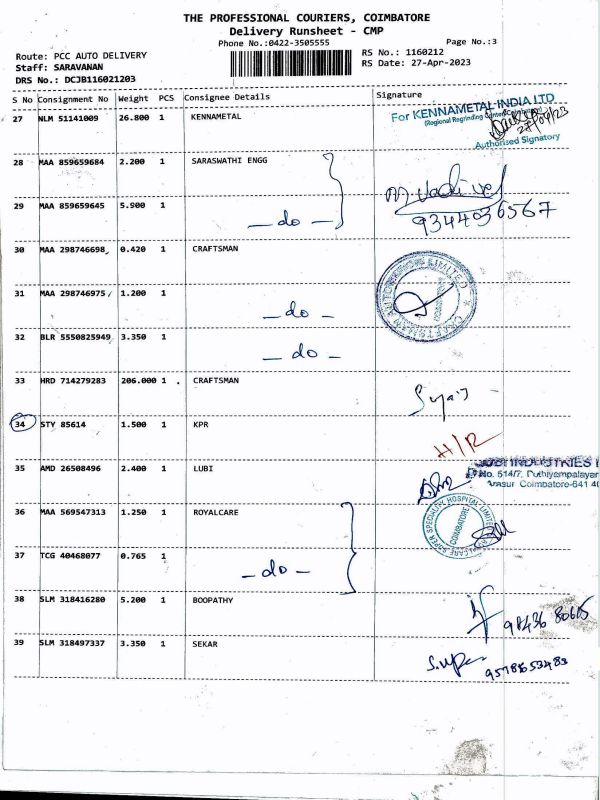 THE PROFESSIONAL COURIERS, COIMBATORE
Delivery Runsheet - CMP
Phone No.:0422-3505555
Page No.:3
Route: PCC AUTO DELIVERY
RS No.: 1160212
Staff: SARAVANAN
RS Date: 27-Apr-2023
DRS No.: DCJB116021203
S No Consignment No Weight PCS Consignee Details Signature
27 NLM 51141009 26.800 1 KENNAMETAL
For KENNAMETAL INDIA LTD
Authorised Signatory
28 MAA 859659684 2.200 1 SARASWATHI ENGG
29 MAA 859659645 5.900 1 — do —
9344036567
30 MAA 298746698 0.420 1 CRAFTSMAN
31 MAA 298746975 1.200 1 — do —
32 BLR 5550825949 3.350 1 — do —
33 HRD 714279283 206.000 1 CRAFTSMAN
34 STY 85614 1.500 1 KPR
H/R
35 AMD 26508496 2.400 1 LUBI
36 MAA 569547313 1.250 1 ROYALCARE
COIMBATORE
37 TCG 40468077 0.765 1 — do —
38 SLM 318416280 5.200 1 BOOPATHY
39 SLM 318497337 3.350 1 SEKAR